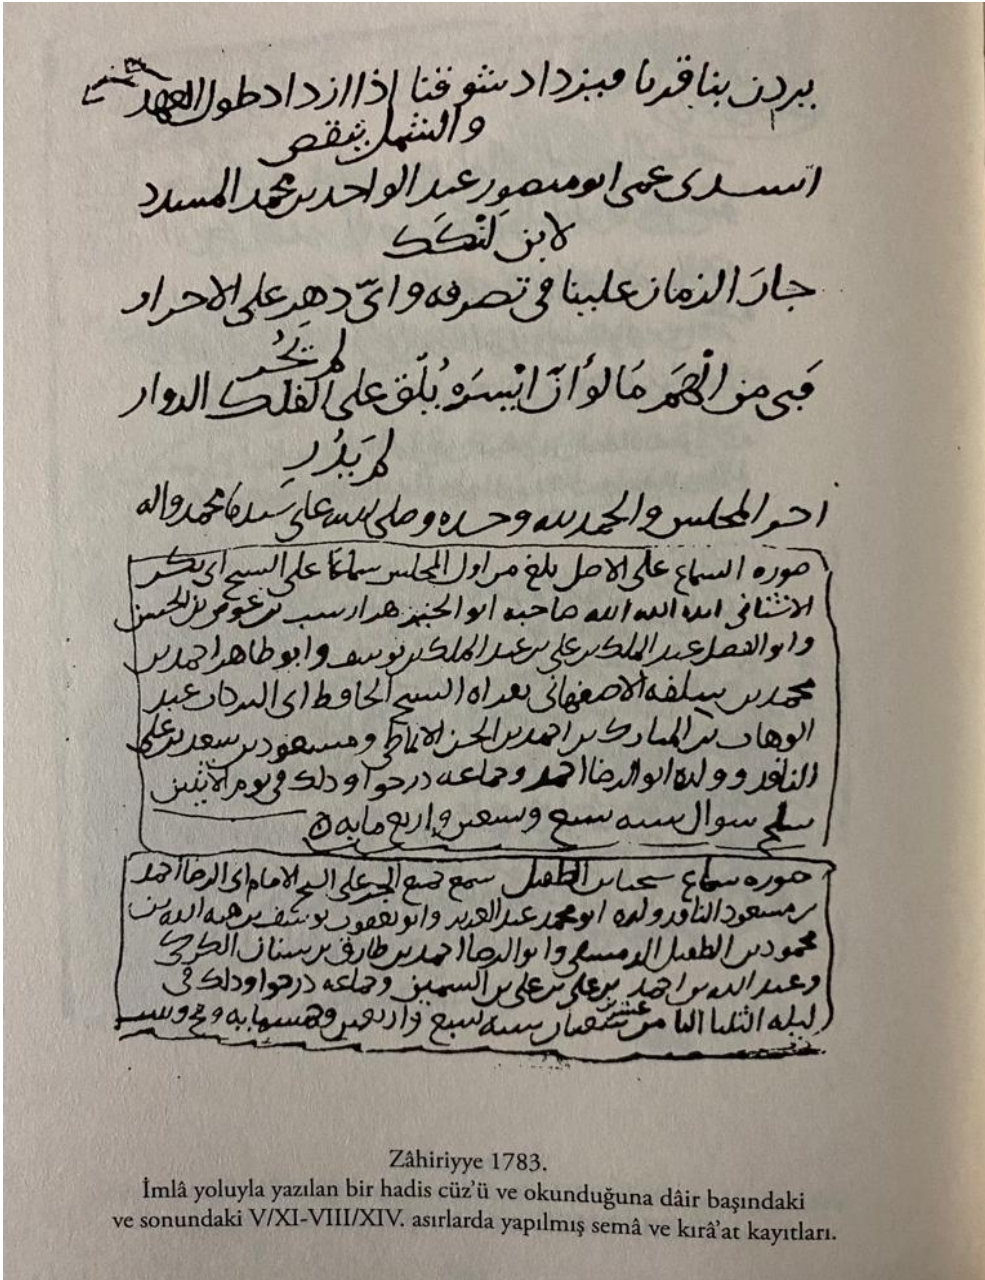 يزدن بنا قربا فيزداد شوقنا إذا ازداد طول العهد
والشمل ينقص
انشدنى عمى ابو منصور عبد الواحد بن محمد
لابن لنكك
جارَ الزمان علينا فى تصرفه واىّ دهرٍ على الاحرار
لم يَجُر
فبى من الهمّ مَا لو أنّ ايْسرَهُ يُلْقى على الفلك الدوار
لم يَدُرِ
اخر المجلس والحمد لله وحده وصلى الله على سيدنا محمد واله
صوره السماع على الاصل بلغ من اول المجلس سماعا على الشيخ ابى بكر
ايده الله صاحبه ابو الحسن هزارسب بن عوض بن الحسن
وابو الفضل عبد الملك بن على بن عبد الملك بن يوسف وابو طاهر احمد بن
محمد بن سلفه الاصفهانى بقراه الشيخ الحافظ ابى البركات عبد
الوهاب بن المبارك بن احمد بن الحسن الانماطى ومسعود بن سعد بن على
الناقد وولده ابو الرضا احمد وجماعه درجوا وذلك فى يوم الاثنين
سلخ شوال سنه سبع وتسعين واربع مايه
صوره سماع شيخنا بن الطفيل سمع جميع الجزء على الشيخ الامام ابى الرضا احمد
بن مسعود الناقد ولده ابو محمد عبد العزيز وابو يعقوب يوسف بن هبه الله بن
محمود بن الطفيل الدمشقى وابو الرضا احمد بن طارق بن سنان الكركى
وعبد الله بن احمد بن على بن على بن السمين وجماعه درجوا وذلك فى
ليله الثلثا الثامن عشر من شعبان سنه سبع واربعين وخمسمايه
Zâhiriyye 1783.
İmlâ yoluyla yazılan bir hadis cüz'ü ve okunduğuna dâir başındaki
ve sonundaki V/XI-VIII/XIV. asırlarda yapılmış semâ ve kırâ'at kayıtları.